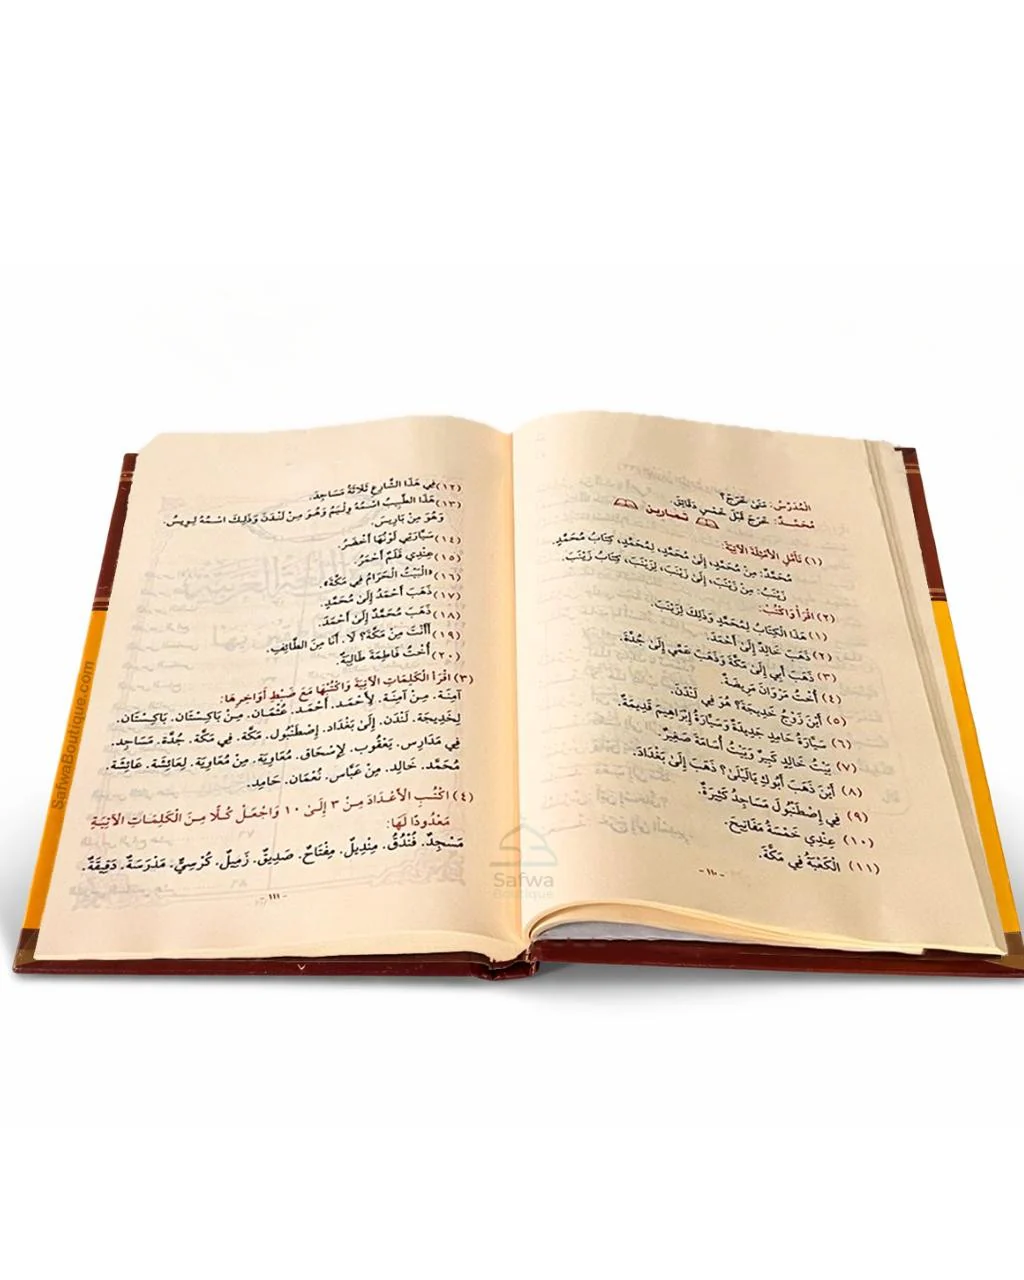 الْمُدَرِّسُ: مَتَىٰ خَرَجَ؟
مُحَمَّدٌ: خَرَجَ قَبْلَ خَمْسِ دَقَائِقَ.
تمارين
(١) تَأَمَّلِ الْأَمْثِلَةَ الْآتِيَةَ:
مُحَمَّدٌ: مِنْ مُحَمَّدٍ، إِلَىٰ مُحَمَّدٍ، لِمُحَمَّدٍ، كِتَابُ مُحَمَّدٍ.
زَيْنَبُ: مِنْ زَيْنَبَ، إِلَىٰ زَيْنَبَ، لِزَيْنَبَ، كِتَابُ زَيْنَبَ.
(٢) اقْرَأْ وَاكْتُبْ:
(١) هَذَا الْكِتَابُ لِمُحَمَّدٍ وَذَلِكَ لِزَيْنَبَ.
(٢) ذَهَبَ خَالِدٌ إِلَىٰ أَحْمَدَ.
(٣) ذَهَبَ أَبِي إِلَىٰ مَكَّةَ وَذَهَبَ عَمِّي إِلَىٰ جُدَّةَ.
(٤) أُخْتُ مَرْوَانَ مَرِيضَةٌ.
(٥) أَيْنَ زَوْجُ خَدِيجَةَ؟ هُوَ فِي لَنْدَنَ.
(٦) سَيَّارَةُ حَامِدٍ جَدِيدَةٌ وَسَيَّارَةُ إِبْرَاهِيمَ قَدِيمَةٌ.
(٧) بَيْتُ خَالِدٍ كَبِيرٌ وَبَيْتُ أُسَامَةَ صَغِيرٌ.
(٨) أَيْنَ ذَهَبَ أَبُوكِ يَا لَيْلَىٰ؟ ذَهَبَ إِلَىٰ بَغْدَادَ.
(٩) فِي إِصْطَنْبُولَ مَسَاجِدُ كَثِيرَةٌ.
(١٠) عِنْدِي خَمْسَةُ مَفَاتِيحَ.
(١١) الْكَعْبَةُ فِي مَكَّةَ.
- ١١٠ -
(١٢) فِي هَذَا الشَّارِعِ ثَلَاثَةُ مَسَاجِدَ.
(١٣) هَذَا الطَّبِيبُ اسْمُهُ وِلْيَمُ وَهُوَ مِنْ لَنْدَنَ وَذَلِكَ اسْمُهُ لِوِيسُ.
وَهُوَ مِنْ بَارِيسَ.
(١٤) سَيَّارَتِي لَوْنُهَا أَخْضَرُ.
(١٥) عِنْدِي قَلَمٌ أَحْمَرُ.
(١٦) «الْبَيْتُ الْحَرَامُ فِي مَكَّةَ».
(١٧) ذَهَبَ أَحْمَدُ إِلَىٰ مُحَمَّدٍ.
(١٨) ذَهَبَ مُحَمَّدٌ إِلَىٰ أَحْمَدَ.
(١٩) أَأَنْتَ مِنْ مَكَّةَ؟ لَا. أَنَا مِنَ الطَّائِفِ.
(٢٠) أُخْتُ فَاطِمَةَ طَالِبَةٌ.
(٣) اقْرَأِ الْكَلِمَاتِ الْآتِيَةَ وَاكْتُبْهَا مَعَ ضَبْطِ أَوَاخِرِهَا:
آمِنَة. مِنْ آمِنَة. لِأَحْمَد. أَحْمَد. عُثْمَان. مِنْ بَاكِسْتَان. بَاكِسْتَان.
لِخَدِيجَة. لَنْدَن. إِلَىٰ بَغْدَاد. إِصْطَنْبُول. مَكَّة. فِي مَكَّة. جُدَّة. مَسَاجِد.
فِي مَدَارِس. يَعْقُوب. لِإِسْحَاق. مُعَاوِيَة. مِنْ مُعَاوِيَة. لِعَائِشَة. عَائِشَة.
مُحَمَّد. خَالِد. مِنْ عَبَّاس. نُعْمَان. حَامِد.
(٤) اكْتُبِ الْأَعْدَادَ مِنْ ٣ إِلَىٰ ١٠ وَاجْعَلْ كُلًّا مِنَ الْكَلِمَاتِ الْآتِيَةِ
مَعْدُودًا لَهَا:
مَسْجِدٌ. فُنْدُقٌ. مِنْدِيلٌ. مِفْتَاحٌ. صَدِيقٌ. زَمِيلٌ. كُرْسِيٌّ. مَدْرَسَةٌ. دَقِيقَةٌ.
- ١١١ -
SafwaBoutique.com
Safwa
Boutique